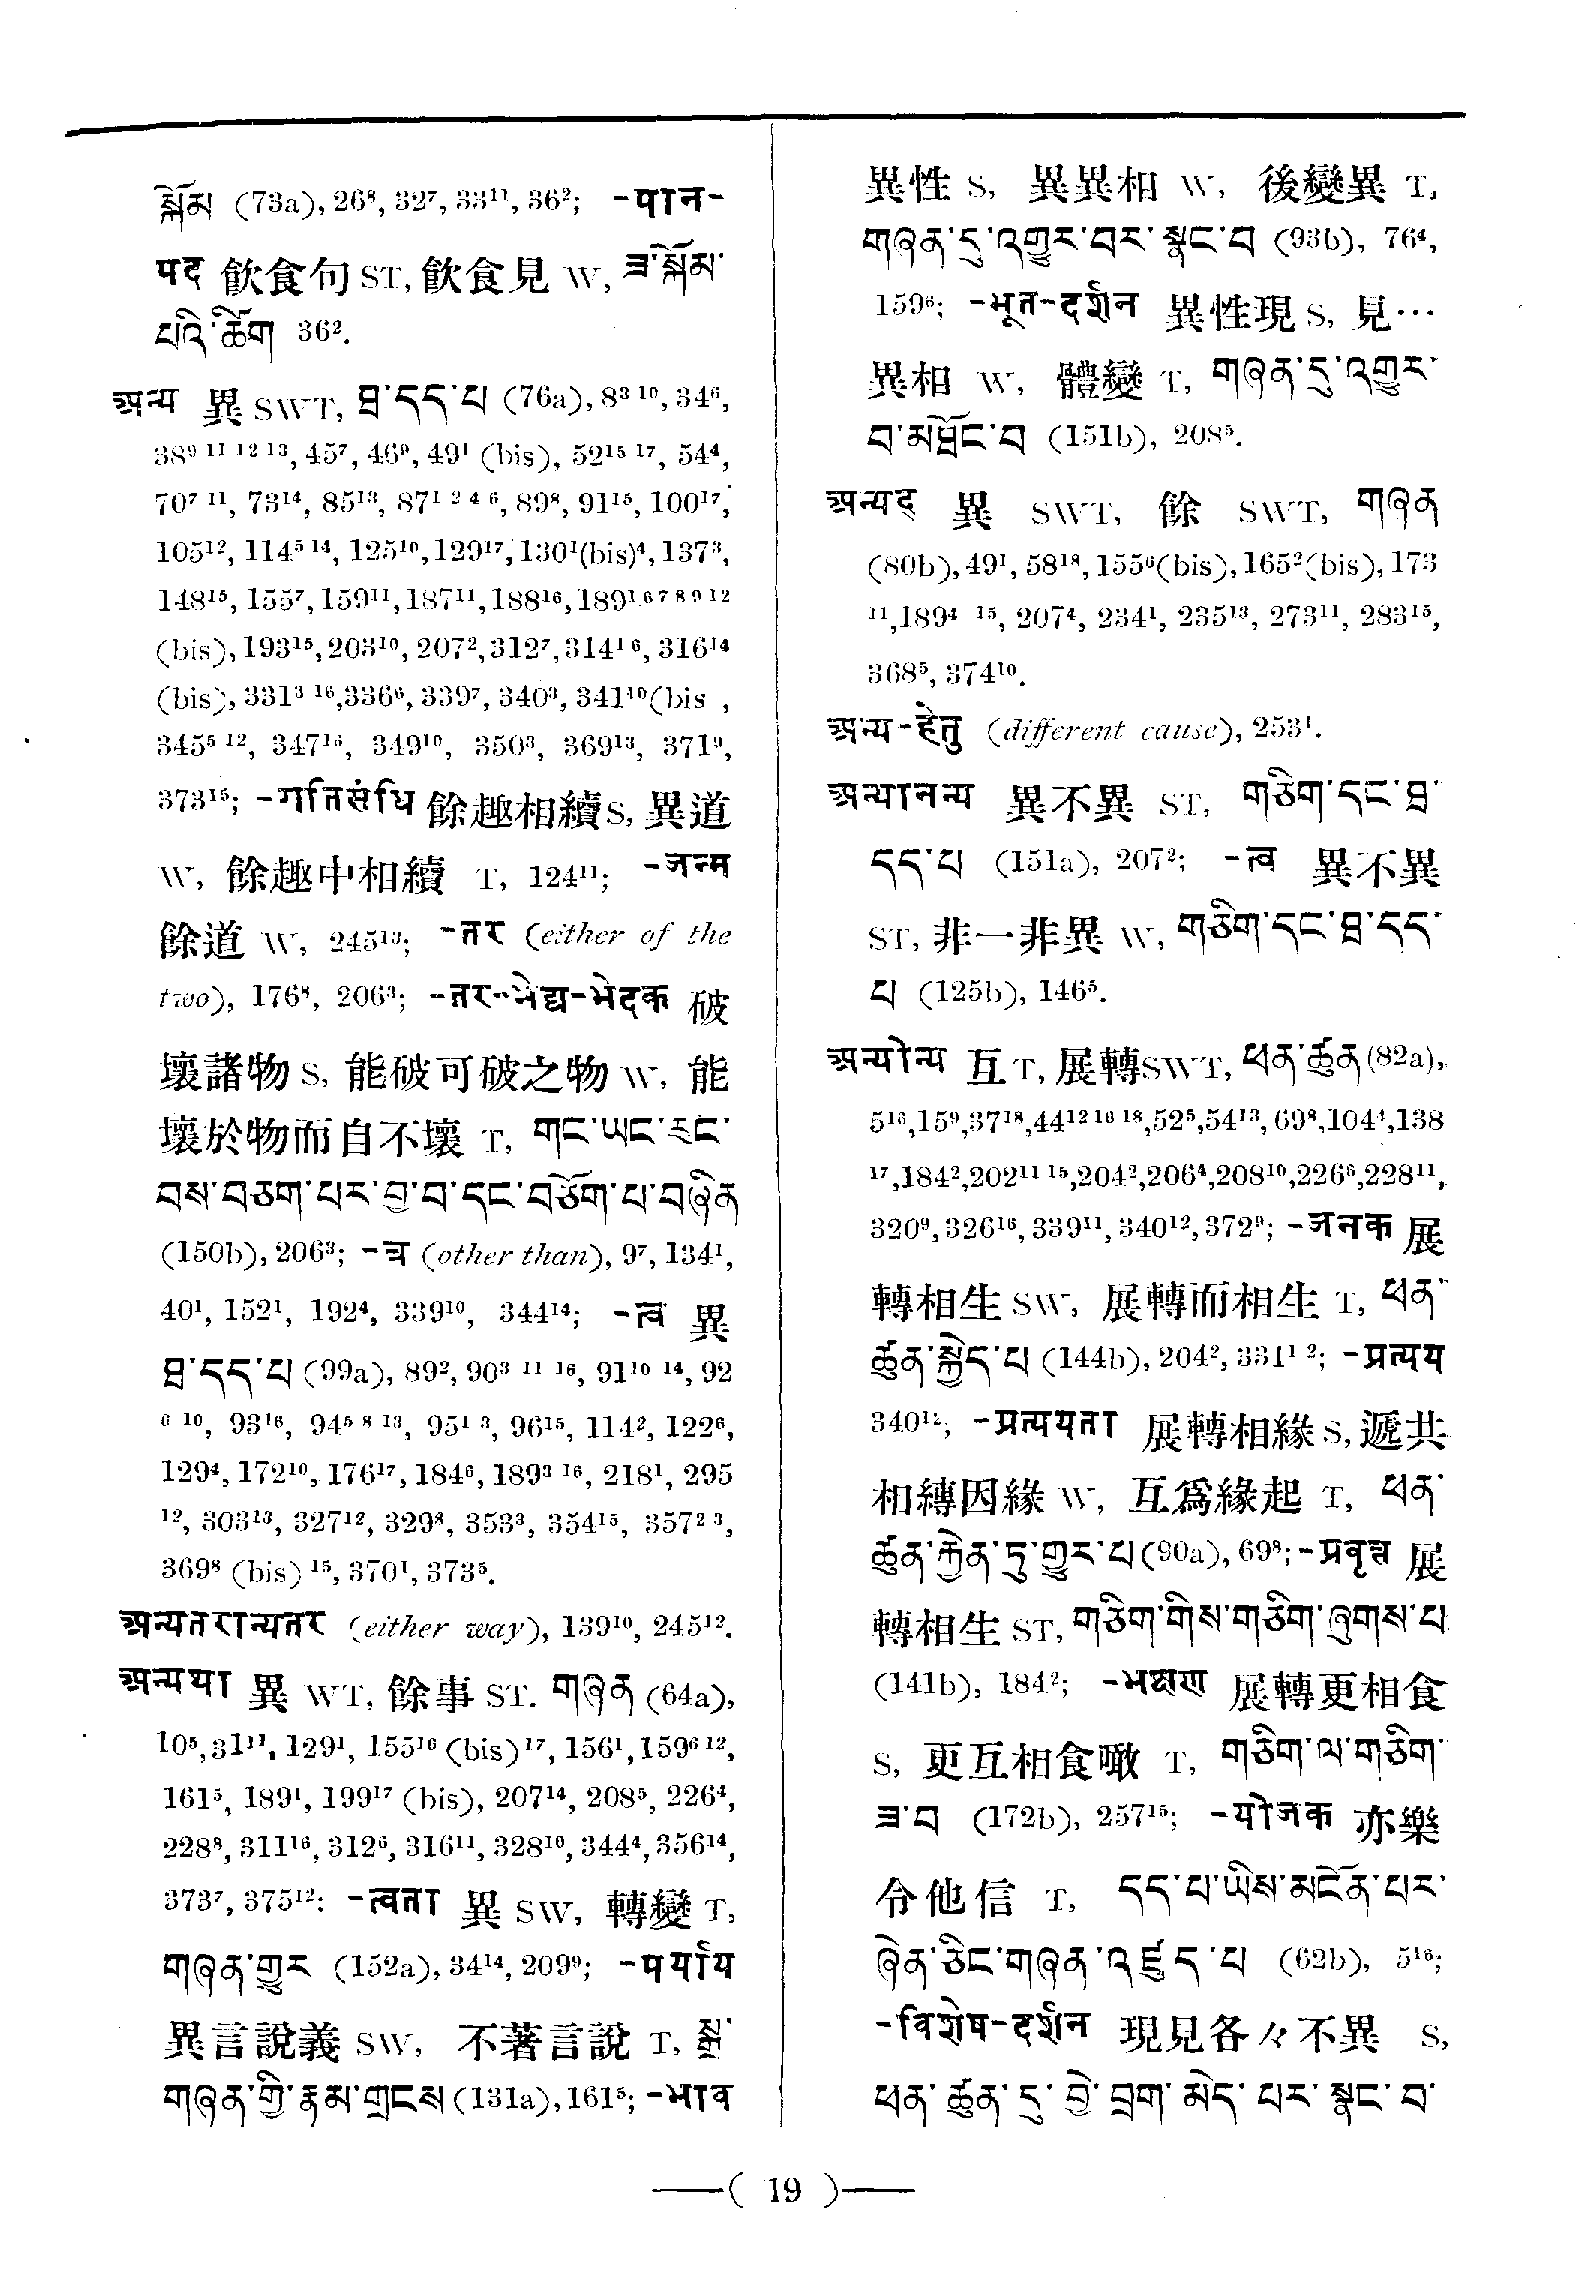 སྐོམ (73a), 26⁸, 32⁷, 33¹¹, 36²; -पान-
पद 飮食句 ST, 飮食見 W, ཟ་སྐོམ་
པའི་ཚིག 36².
अन्य 異 SWT, ཐ་དད་པ (76a), 8³ ¹⁰, 34⁶,
38⁹ ¹¹ ¹² ¹³, 45⁷, 46⁹, 49¹ (bis), 52¹⁵ ¹⁷, 54⁴,
70⁷ ¹¹, 73¹⁴, 85¹³, 87¹ ² ⁴ ⁶, 89⁸, 91¹⁵, 100¹⁷,
105¹², 114⁵ ¹⁴, 125¹⁰, 129¹⁷, 130¹(bis)⁴, 137³,
148¹⁵, 155⁷, 159¹¹, 187¹¹, 188¹⁶, 189¹ ⁶ ⁷ ⁸ ⁹ ¹²
(bis), 193¹⁵, 203¹⁰, 207², 312⁷, 314¹ ⁶, 316¹⁴
(bis), 331³ ¹⁶, 336⁶, 339⁷, 340³, 341¹⁰(bis ,
345⁵ ¹², 347¹⁶, 349¹⁰, 350³, 369¹³, 371⁹,
373¹⁵; -गतिसंधि 餘趣相續S, 異道
W, 餘趣中相續 T, 124¹¹; -जन्म
餘道 W, 245¹³; -तर (either of the
two), 176⁸, 206³; -तर-भेद्य-भेदक 破
壞諸物 S, 能破可破之物 W, 能
壞於物而自不壞 T, གང་ཡང་རུང་
བས་བཅག་པར་བྱ་བ་དང་བཅོག་པ་བཞིན
(150b), 206³; -त्र (other than), 9⁷, 134¹,
40¹, 152¹, 192⁴, 339¹⁰, 344¹⁴; -त्व 異
ཐ་དད་པ (99a), 89², 90³ ¹¹ ¹⁶, 91¹⁰ ¹⁴, 92
⁶ ¹⁰, 93¹⁶, 94⁵ ⁸ ¹³, 95¹ ³, 96¹⁵, 114², 122⁶,
129⁴, 172¹⁰, 176¹⁷, 184⁶, 189³ ¹⁶, 218¹, 295
¹², 303¹³, 327¹², 329⁸, 353³, 354¹⁵, 357² ³,
369⁸ (bis) ¹⁵, 370¹, 373⁵.
अन्यतरान्यतर (either way), 139¹⁰, 245¹².
अन्यथा 異 WT, 餘事 ST. གཞན (64a),
10⁵, 31¹¹, 129¹, 155¹⁶ (bis) ¹⁷, 156¹, 159⁶ ¹²,
161⁵, 189¹, 199¹⁷ (bis), 207¹⁴, 208⁵, 226⁴,
228⁸, 311¹⁶, 312⁶, 316¹¹, 328¹⁰, 344⁴, 356¹⁴,
373⁷, 375¹²: -त्वता 異 SW, 轉變 T,
གཞན་གྱུར (152a), 34¹⁴, 209⁹; -पर्याय
異言說義 SW, 不著言說 T, སྒྲ་
གཞན་གྱི་རྣམ་གྲངས (131a), 161⁵; -भाव
異性 S, 異異相 W, 後變異 T,
གཞན་དུ་འགྱུར་བར་སྣང་བ (93b), 76⁴,
159⁶; -भूत-दर्शन 異性現 S, 見…
異相 W, 體變 T, གཞན་དུ་འགྱུར་
བ་མཐོང་བ (151b), 208⁵.
अन्यद् 異 SWT, 餘 SWT, གཞན
(80b), 49¹, 58¹⁸, 155⁶(bis), 165²(bis), 173
¹¹, 189⁴ ¹⁵, 207⁴, 234¹, 235¹³, 273¹¹, 283¹⁵,
368⁵, 374¹⁰.
अन्य-हेतु (different cause), 253¹.
अन्यानन्य 異不異 ST, གཅིག་དང་ཐ་
དད་པ (151a), 207²; -त्व 異不異
ST, 非一非異 W, གཅིག་དང་ཐ་དད་
པ (125b), 146⁵.
अन्योन्य 互 T, 展轉SWT, ཕན་ཚུན (82a),
5¹⁶, 15⁹, 37¹⁸, 44¹² ¹⁶ ¹⁸, 52⁵, 54¹³, 69⁸, 104⁴, 138
¹⁷, 184², 202¹¹ ¹⁵, 204², 206⁴, 208¹⁰, 226⁶, 228¹¹,
320⁹, 326¹⁶, 339¹¹, 340¹², 372⁹; -जनक 展
轉相生 SW, 展轉而相生 T, ཕན་
ཚུན་སྐྱེད་པ (144b), 204², 331¹ ²; -प्रत्यय
340¹²; -प्रत्ययता 展轉相緣 S, 遞共
相縛因緣 W, 互爲緣起 T, ཕན་
ཚུན་རྐྱེན་ཏུ་གྱུར་པ (90a), 69⁸; -प्रवृत्त 展
轉相生 ST, གཅིག་གིས་གཅིག་ཞུགས་པ
(141b), 184²; -भक्षण 展轉更相食
S, 更互相食噉 T, གཅིག་ལ་གཅིག་
ཟ་བ (172b), 257¹⁵; -योजक 亦樂
令他信 T, དད་པ་ཡིས་མངོན་པར་
ཞེན་ཅིང་གཞན་འཛུད་པ (62b), 5¹⁶;
-विशेष-दर्शन 現見各々不異 S,
ཕན་ཚུན་དུ་བྱེ་བྲག་མེད་པར་སྣང་བ་
—( 19 )—